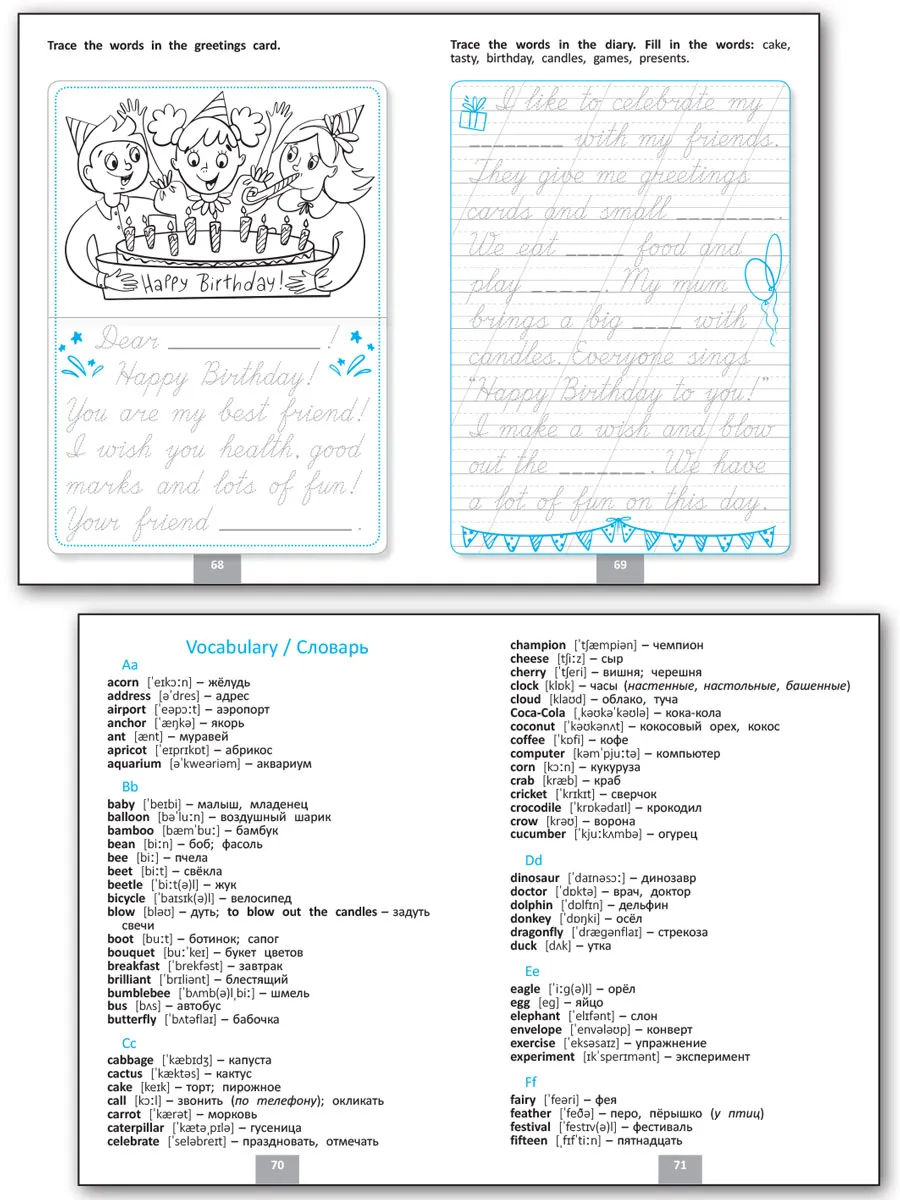 Trace the words in the greetings card.
Happy Birthday!
Dear ____________ !
Happy Birthday!
You are my best friend!
I wish you health, good
marks and lots of fun!
Your friend ____________ .
68
Trace the words in the diary. Fill in the words: cake,
tasty, birthday, candles, games, presents.
I like to celebrate my
________ with my friends.
They give me greetings
cards and small ________.
We eat _____ food and
play ______. My mum
brings a big ____ with
candles. Everyone sings
“Happy Birthday to you!”
I make a wish and blow
out the _______. We have
a lot of fun on this day.
69
Vocabulary / Словарь
Aa
acorn [ˈeɪkɔːn] – жёлудь
address [əˈdres] – адрес
airport [ˈeəpɔːt] – аэропорт
anchor [ˈæŋkə] – якорь
ant [ænt] – муравей
apricot [ˈeɪprɪkɒt] – абрикос
aquarium [əˈkweəriəm] – аквариум
Bb
baby [ˈbeɪbi] – малыш, младенец
balloon [bəˈluːn] – воздушный шарик
bamboo [bæmˈbuː] – бамбук
bean [biːn] – боб; фасоль
bee [biː] – пчела
beet [biːt] – свёкла
beetle [ˈbiːt(ə)l] – жук
bicycle [ˈbaɪsɪk(ə)l] – велосипед
blow [bləʊ] – дуть; to blow out the candles – задуть
свечи
boot [buːt] – ботинок; сапог
bouquet [buːˈkeɪ] – букет цветов
breakfast [ˈbrekfəst] – завтрак
brilliant [ˈbrɪliənt] – блестящий
bumblebee [ˈbʌmb(ə)lˌbiː] – шмель
bus [bʌs] – автобус
butterfly [ˈbʌtəflaɪ] – бабочка
Cc
cabbage [ˈkæbɪdʒ] – капуста
cactus [ˈkæktəs] – кактус
cake [keɪk] – торт; пирожное
call [kɔːl] – звонить (по телефону); окликать
carrot [ˈkærət] – морковь
caterpillar [ˈkætəˌpɪlə] – гусеница
celebrate [ˈseləbreɪt] – праздновать, отмечать
70
champion [ˈtʃæmpiən] – чемпион
cheese [tʃiːz] – сыр
cherry [ˈtʃeri] – вишня; черешня
clock [klɒk] – часы (настенные, настольные, башенные)
cloud [klaʊd] – облако, туча
Coca-Cola [ˌkəʊkəˈkəʊlə] – кока-кола
coconut [ˈkəʊkənʌt] – кокосовый орех, кокос
coffee [ˈkɒfi] – кофе
computer [kəmˈpjuːtə] – компьютер
corn [kɔːn] – кукуруза
crab [kræb] – краб
cricket [ˈkrɪkɪt] – сверчок
crocodile [ˈkrɒkədaɪl] – крокодил
crow [krəʊ] – ворона
cucumber [ˈkjuːkʌmbə] – огурец
Dd
dinosaur [ˈdaɪnəsɔː] – динозавр
doctor [ˈdɒktə] – врач, доктор
dolphin [ˈdɒlfɪn] – дельфин
donkey [ˈdɒŋki] – осёл
dragonfly [ˈdrægənflaɪ] – стрекоза
duck [dʌk] – утка
Ee
eagle [ˈiːg(ə)l] – орёл
egg [eg] – яйцо
elephant [ˈelɪfənt] – слон
envelope [ˈenvələʊp] – конверт
exercise [ˈeksəsaɪz] – упражнение
experiment [ɪkˈsperɪmənt] – эксперимент
Ff
fairy [ˈfeəri] – фея
feather [ˈfeðə] – перо, пёрышко (у птиц)
festival [ˈfestɪv(ə)l] – фестиваль
fifteen [ˌfɪfˈtiːn] – пятнадцать
71